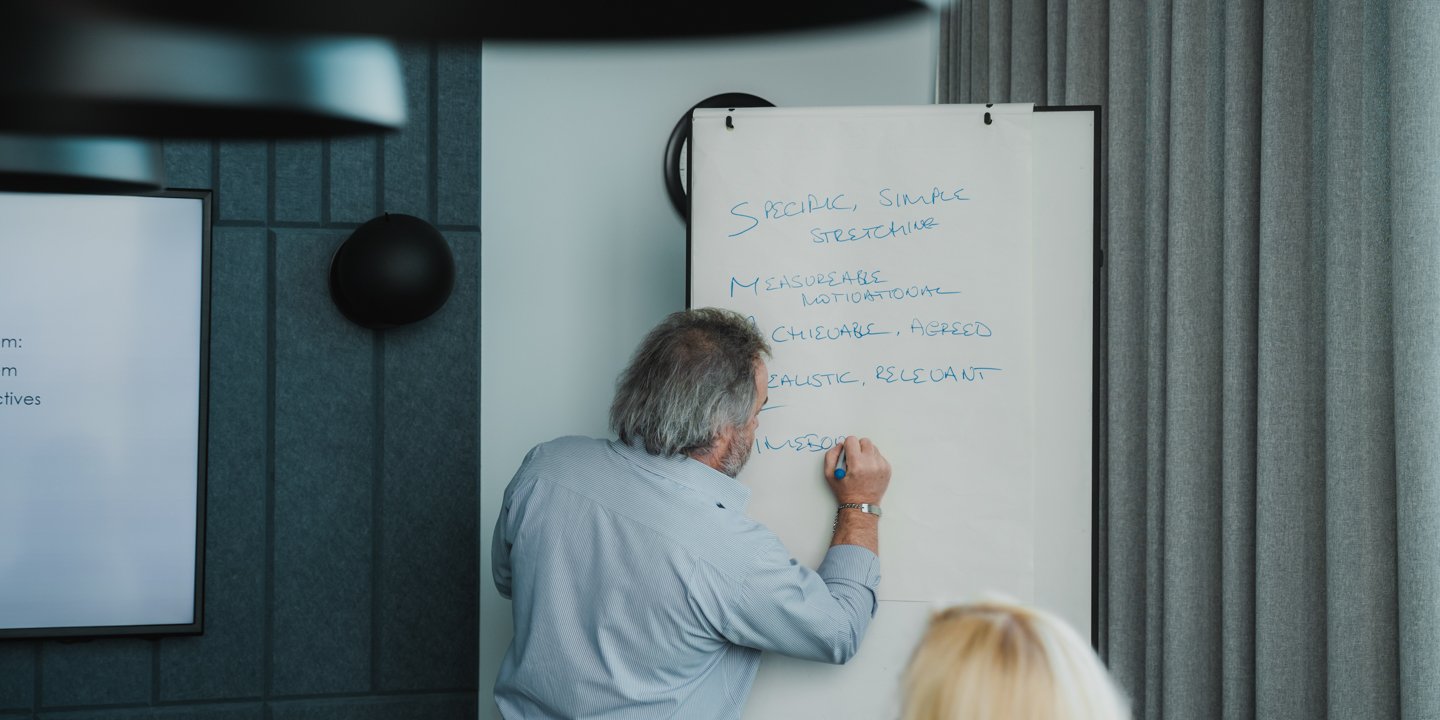 m:
m
ctives
SPECIFIC, SIMPLE
STRETCHING
MEASUREABLE
MOTIVATIONAL
CHIEVABLE, AGREED
EALISTIC, RELEVANT
IMEBO